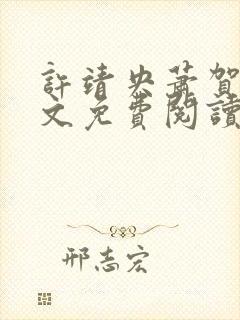 許靖央蕭賀
文免費閱讀
邢志宏